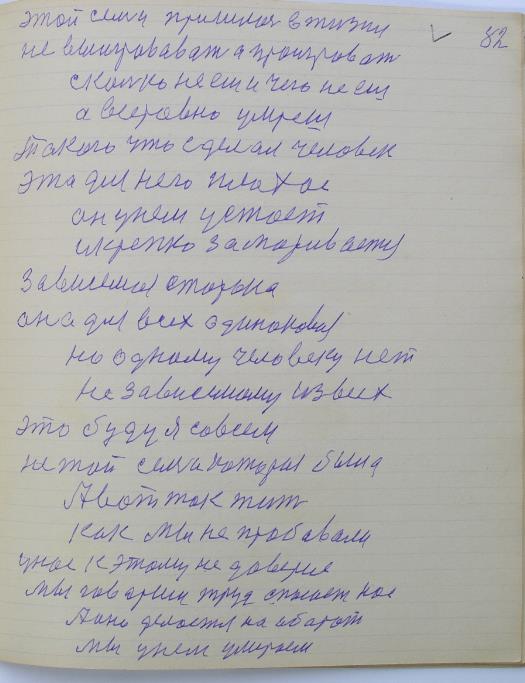 82
этой семи пришлось в жизни
не выигравават а проигроват
сколко не еш и чего не еш
а всеровно умреш
Такого что сделал человек
эта для него плохое
он унем устоет
и крепко замаривает
Зависемая сторона
она для всех одиноковая
но одному человеку нет
не зависемому из всех
это буду я совсем
не той семи которая была
А вот так жит
как мы не пробавали
унас к этому не доверие
мы говарим труд спасает нас
А оно делается на абарот
мы унем умираем